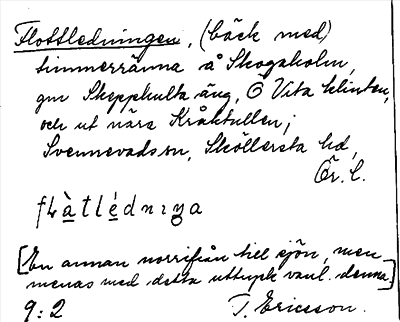 Flottledningen, (bäck med)
timmerränna å Skogaholm,
gm Skepphulta äng, Ö Vita klinten,
och ut nära Kråktullen;
Svennevads sn, Sköllersta hd,
Ör. l.
flàtlédnıŋa
[En annan norrifrån till sjön, men
menas med detta uttryck vanl. denna.]
9:2 T. Ericsson.